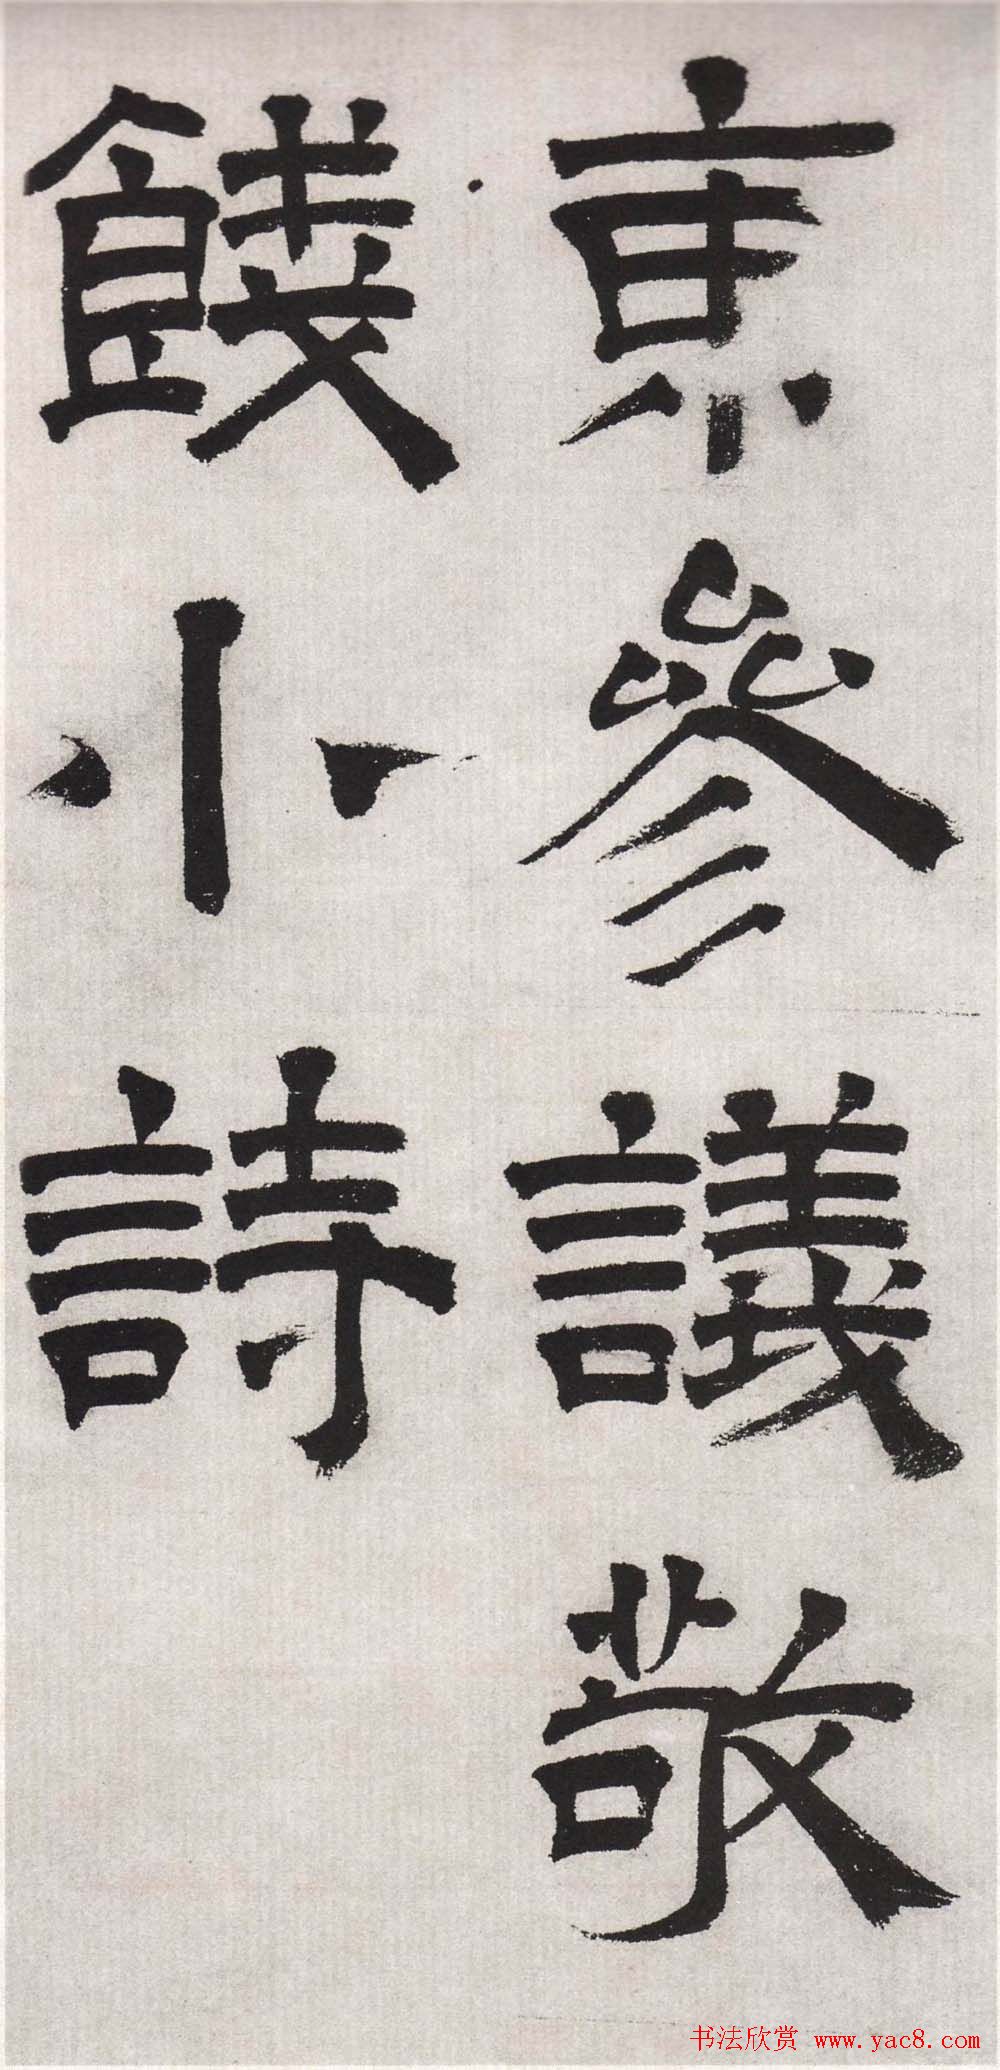 京參議敬
餞小詩
书法欣赏 www.yac8.com